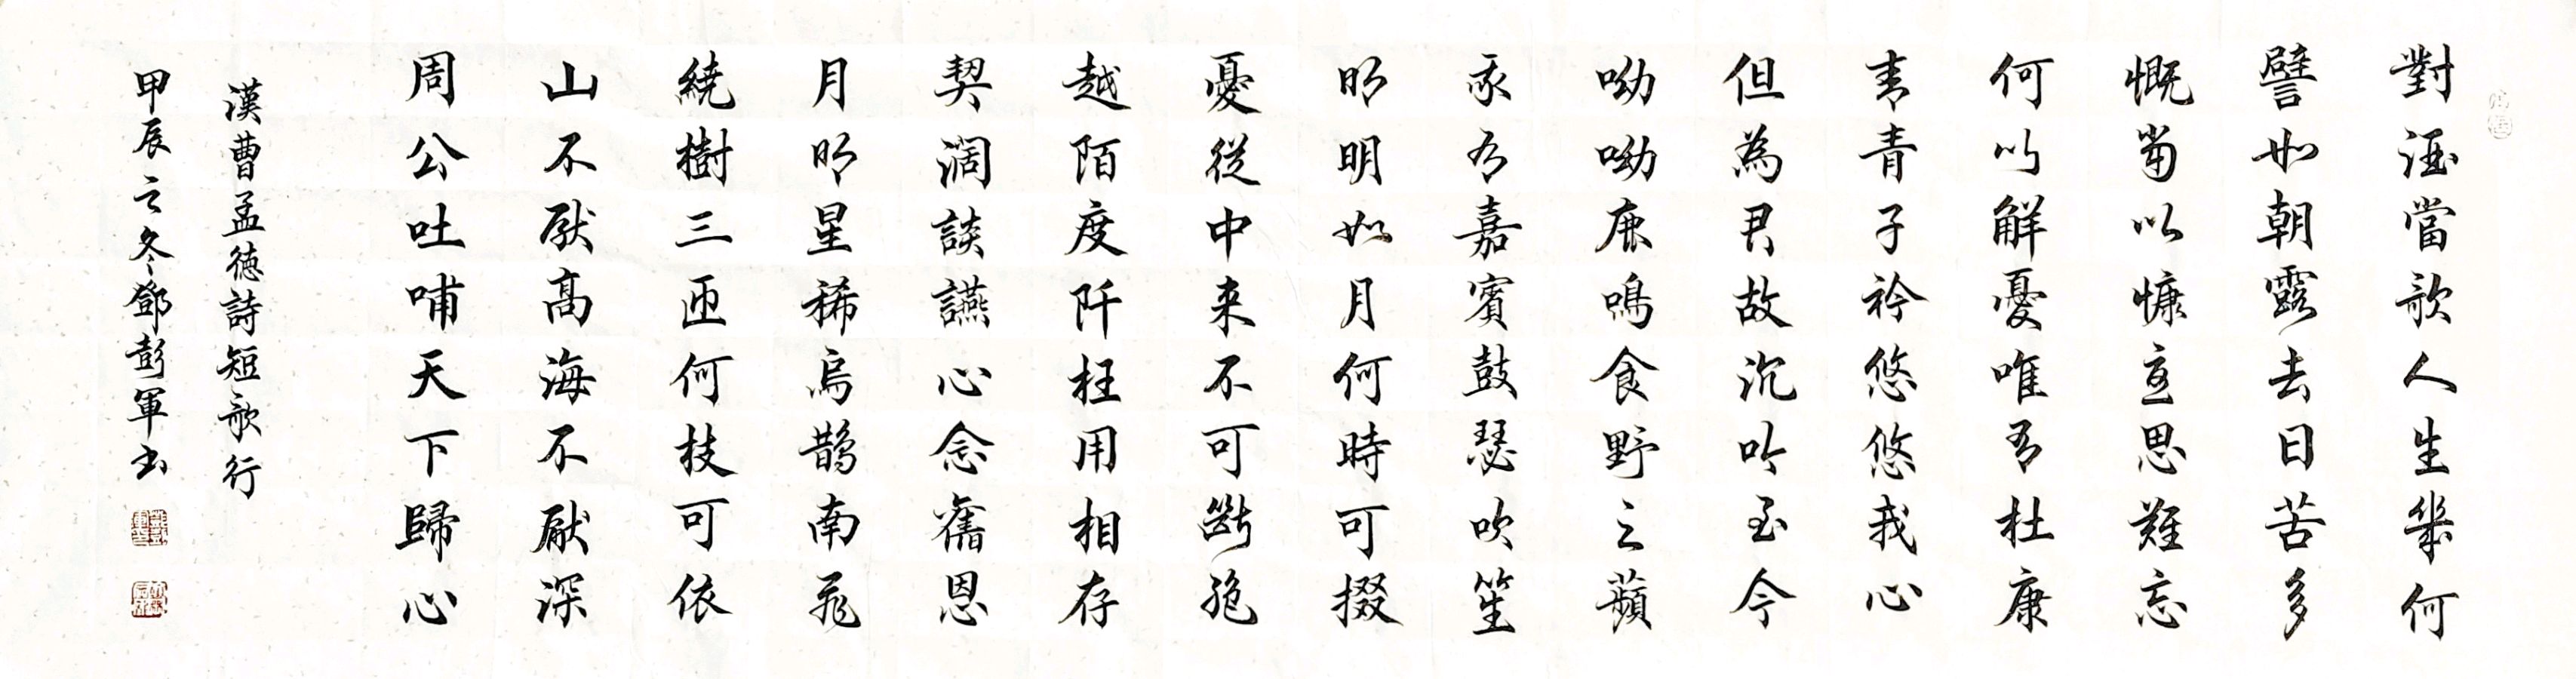 對酒當歌人生幾何
譬如朝露去日苦多
慨當以慷憂思難忘
何以解憂唯有杜康
青青子衿悠悠我心
但為君故沉吟至今
呦呦鹿鳴食野之蘋
我有嘉賓鼓瑟吹笙
明明如月何時可掇
憂從中来不可斷絕
越陌度阡枉用相存
契濶談讌心念舊恩
月明星稀烏鵲南飛
繞樹三匝何枝可依
山不厭高海不厭深
周公吐哺天下歸心
漢曹孟德詩短歌行
甲辰之冬鄧彭軍書